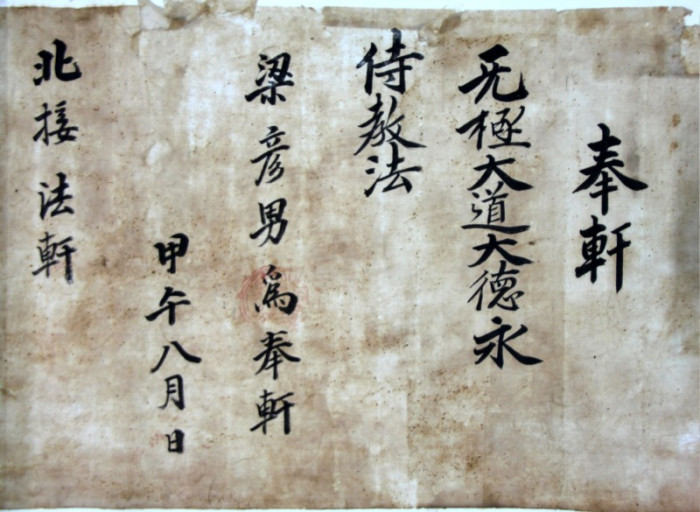 奉軒
旡極大道大德永
侍敎法
梁彦男爲奉軒
甲午八月日
北接法軒